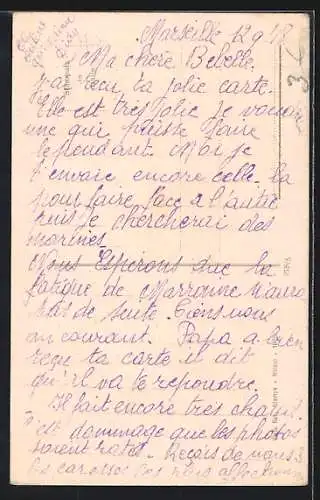 Marseille 12 9 18
Ma chère Bebelle.
J'ai reçu ta jolie carte.
Elle est très jolie je voudrais
une qui puisse faire
le pendant. Moi je
t'envoie encore celle la
pour faire face a l'autre
puis je chercherai des
marines
Nous Esperons que la
fatigue de Marraine n'aura
pas de suite. Tiens nous
au courant. Papa a bien
reçu ta carte il dit
qu'il va te repondre.
Il fait encore très chaud
C'est dommage que les photos
soient ratés. Reçois de nous 3
les caresses les plus affectueuses